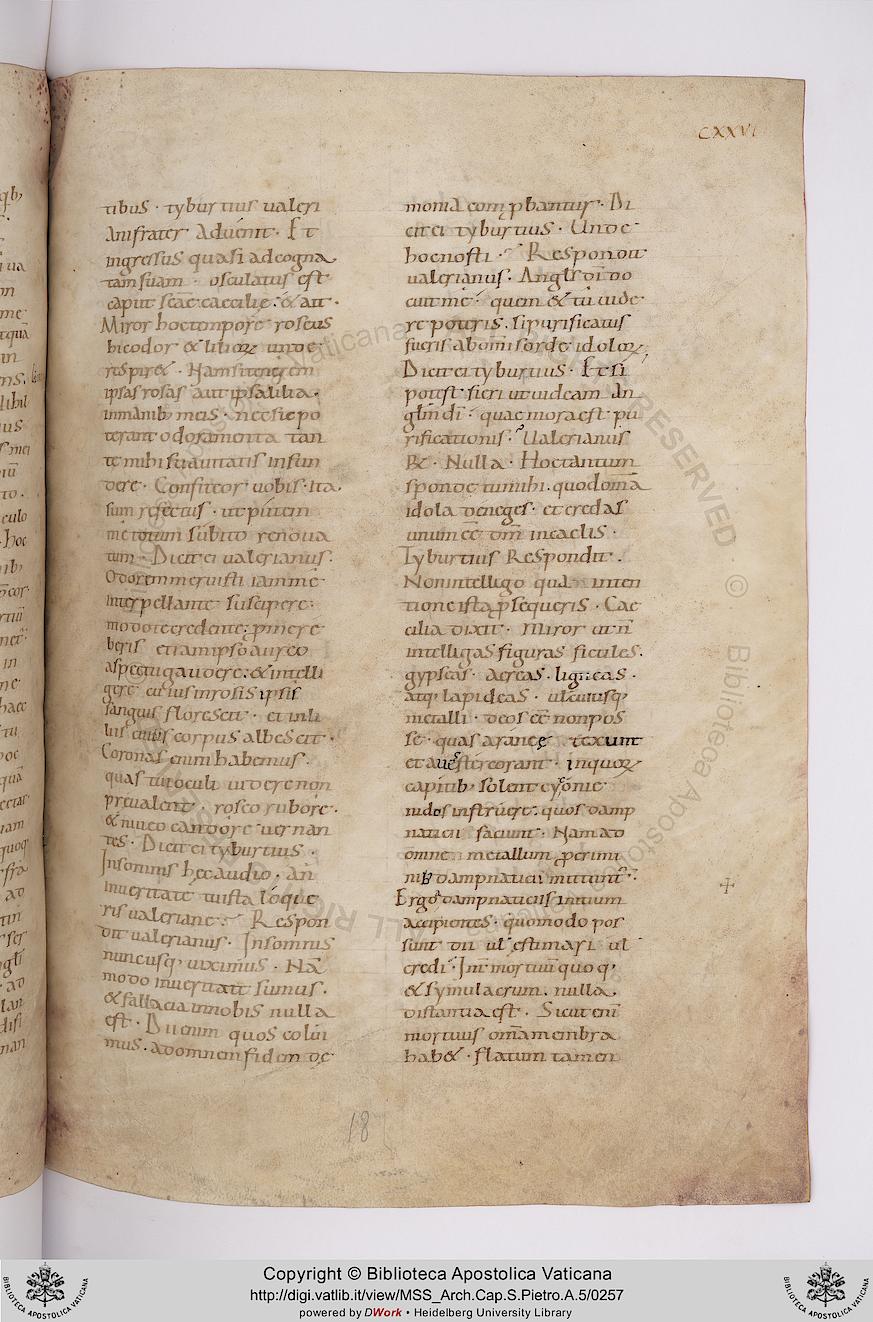 CXXVI
tibus · tyburtius ualeri
Ani frater Aduenit · Et
ingressus quasi ad cogna
tam suam · osculatus est
caput scae caecilie · & ait ·
Miror hoc tempore roseus
hic odor & lilioꝝ unde
respir& · Nam si tenerem
ipsas rosas aut ipsa lilia ·
in manib; meis · nec sic po
terant odoramenta tan
te mihi suauitatis infun
dere · Confiteor uobis · Ita
sum refectus · ut putem
me totum subito renoua
tum · Dicit ei ualerianus ·
Odorem meruisti iam me
interpellante suscipere ·
modo te credente · pmere
beris etiam ipso aureo
aspectu gaudere · & intelli
gere cuius in rosis ipsis
sanguis florescit · et in li
liis cuius corpus albescit ·
Coronas enim habemus ·
quas tui oculi uidere non
preualent · roseo rubore ·
& niueo candore uernan
tes · Dicit ei tyburtius ·
Insomnis hec audio · an
in ueritate tu ista loque
ris ualeriane · Respon
dit ualerianus · Insomnis
nunc usq; uiximus · Nā
modo in ueritate sumus ·
& fallacia in nobis nulla
est · Dii enim quos colui
mus · ad omnem fidem de
monia comꝓbantur · Di
cit ei tyburtius · Unde
hoc nosti · Respondit
ualerianus · Angls di do
cuit me · quem & tu uide
re poteris · si purificatus
fueris ab omī sorde idoloꝝ,
Dicit ei tyburtius · Et si
potest fieri ut uideam An
glm di · quae mora est pu
rificationis · Ualerianus
R& · Nulla · Hoc tantum
sponde tu mihi · quod omā
idola deneges · et credas
unum eē dm in caelis ·
Tyburtius Respondit ·
Non intelligo qua inten
tione ista ꝓsequeris · Cae
cilia dixit · Miror ut ñ
intelligas figuras fictiles ·
gypseas · aereas · ligneas ·
atq; lapideas · ul cuiusq;
metalli · deos eē non pos
se · quas aranee texunt
et aues stercorant · in quoꝝ
capitib; solent cyconie
nidos instruere · quos damp
naticii faciunt · Nam ad
omne metallum ꝓ crimi
nib; dampnaticii mittunt ·
Ergo a dampnaticiis initium
accipientes · quomodo pos
sunt dii ul estimari ul
credi · Int mortuū quoq;
& symulacrum · nulla
distantia est · Sicut enī
mortuus omā membra
hab& · flatum tamen
18
Copyright © Biblioteca Apostolica Vaticana
http://digi.vatlib.it/view/MSS_Arch.Cap.S.Pietro.A.5/0257
powered by DWork • Heidelberg University Library